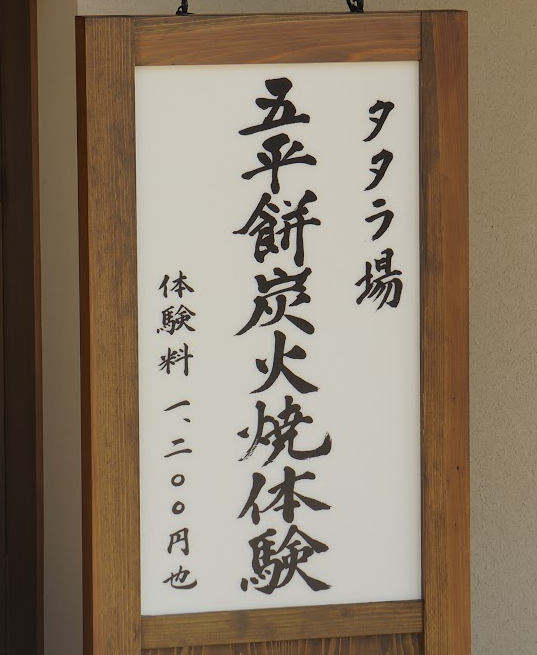 タタラ場
五平餅炭火焼体験
体験料 一、二〇〇円也